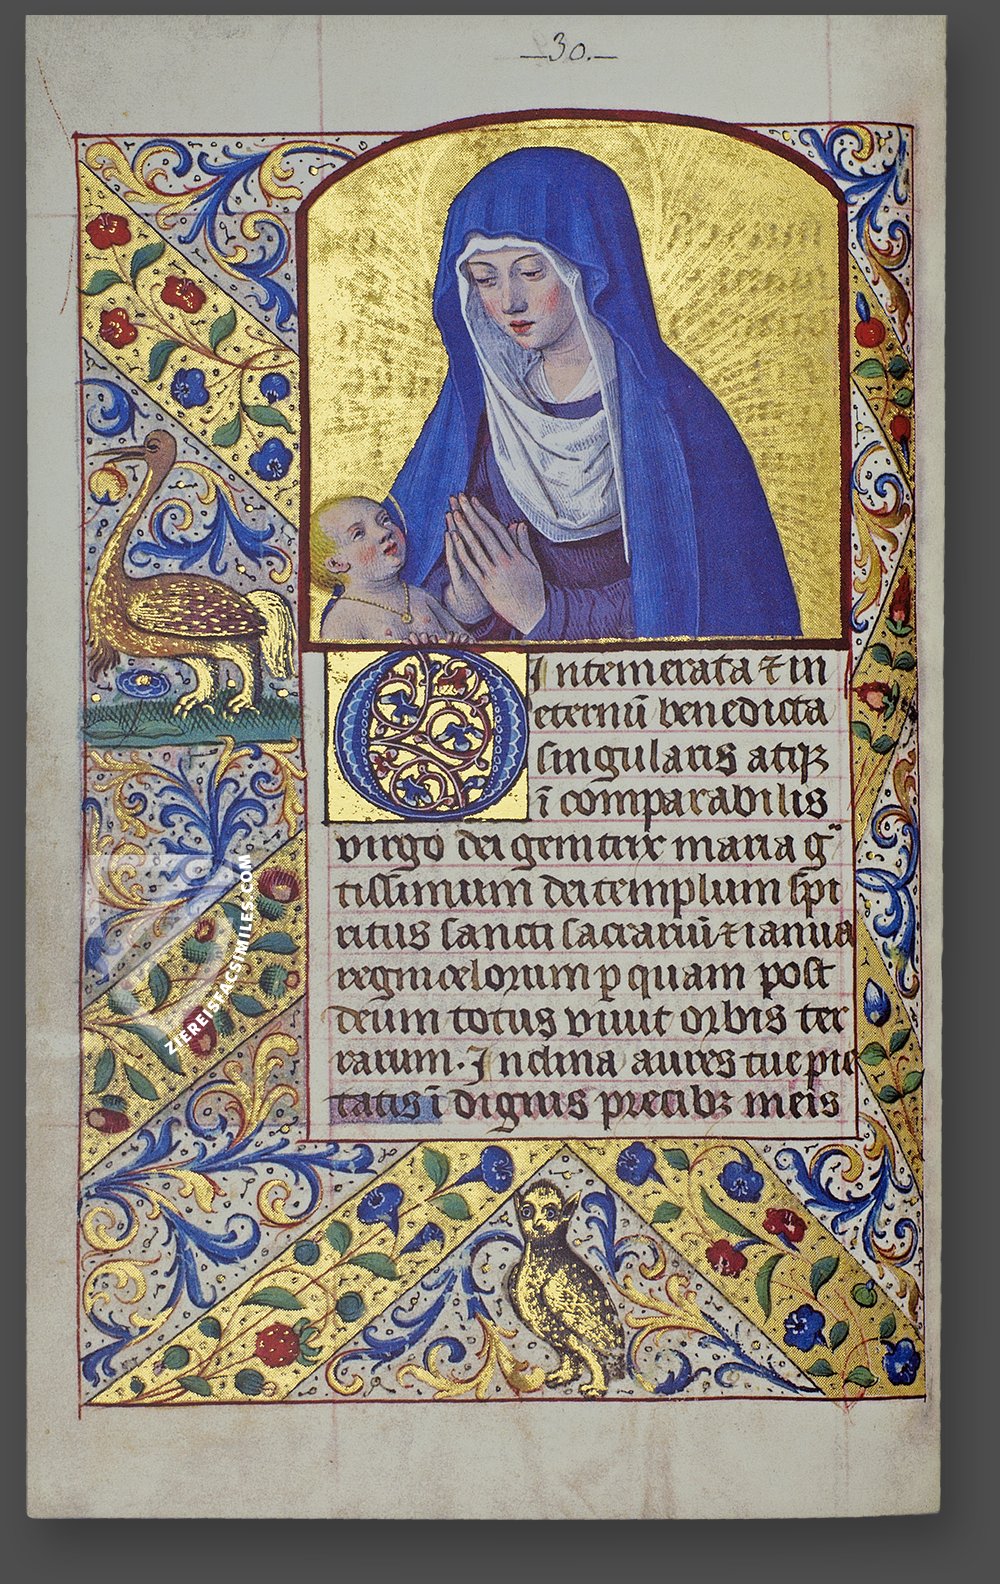 —30.—
O Intemerata ⁊ in
eternū benedicta
singularis atq̃
ī comparabilis
virgo dei genitrix maria g̃
tissimum dei templum spi
ritus sancti sacrariū ⁊ ianua
regni celorum p quam post
deum totus viuit orbis ter
rarum. Inclina aures tue pie
tatis ī dignis precibꝫ meis
ZIEREISFACSIMILES.COM